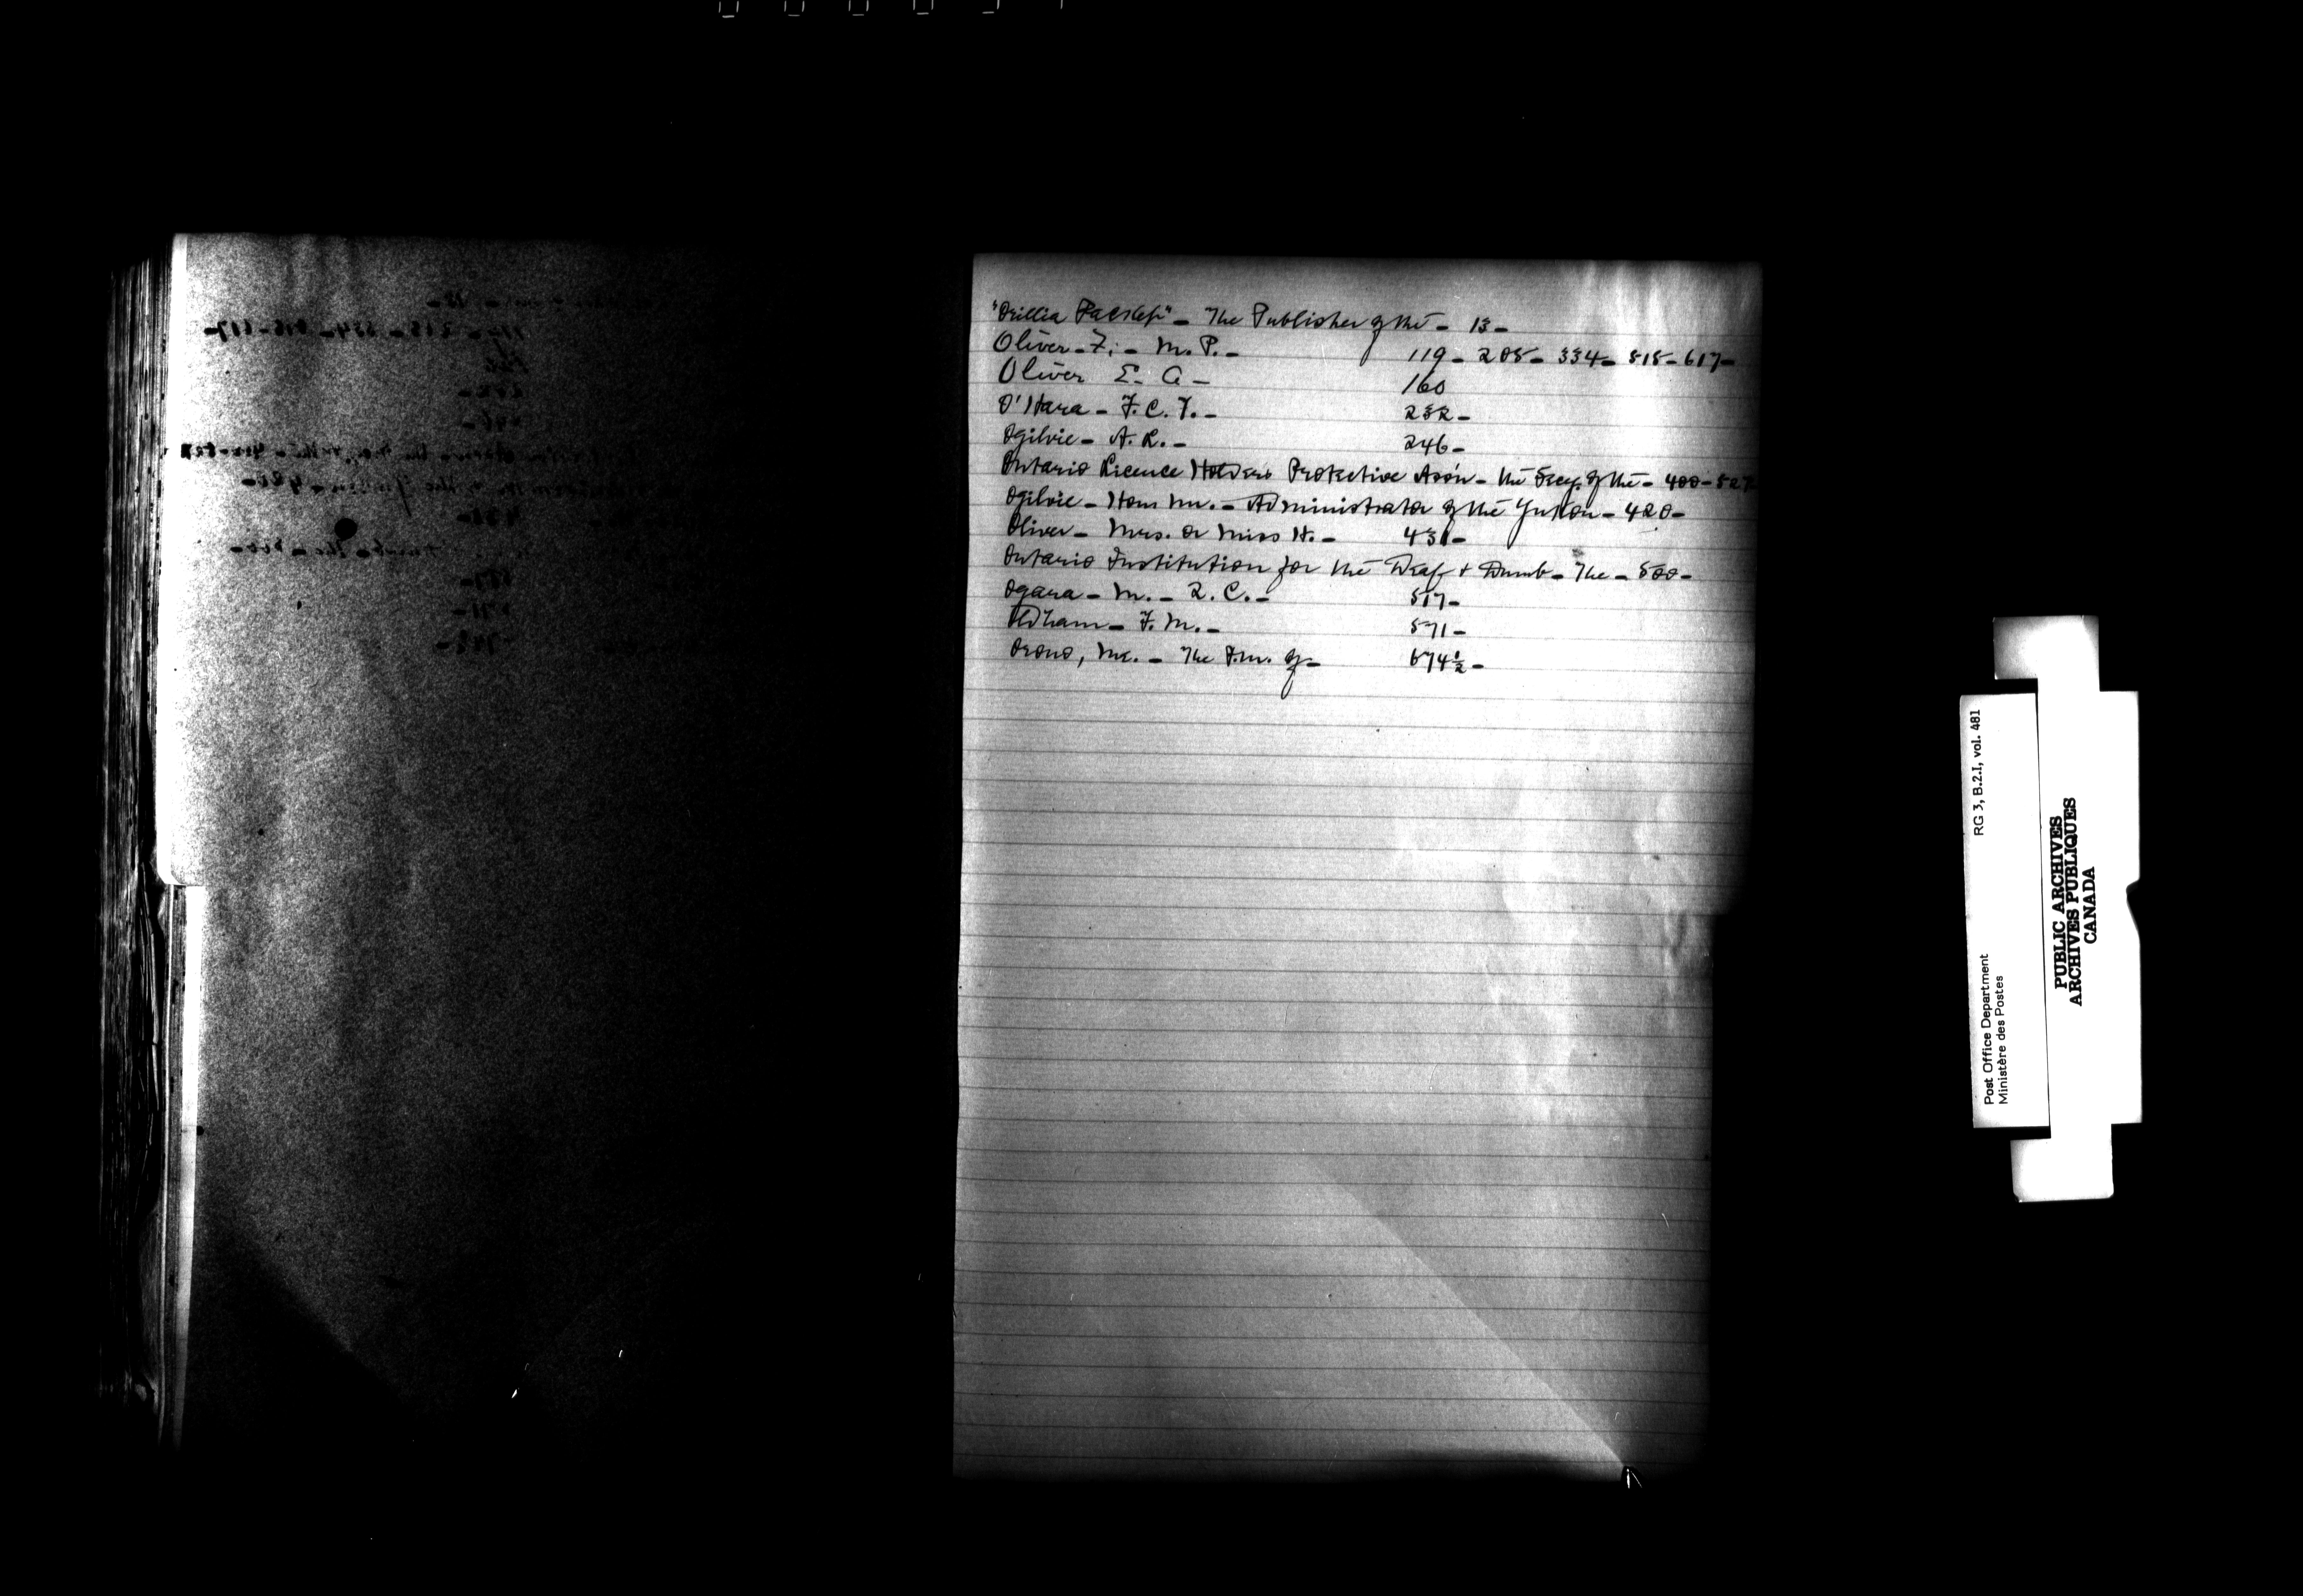 "Orillia Packet" - The Publisher of the - 13 -
Oliver - F. - M.P. - 119 - 205 - 334 - 515 - 617 -
Oliver E. A - 160
O'Hara - F. C. T. - 232 -
Ogilvie - A. L. - 246 -
Ontario Licence Holders Protective Assn - the Secy. of the - 400 - 527
Ogilvie - Hon Mr. - Administrator of the Yukon - 420 -
Oliver - Mrs. or Miss H. - 431 -
Ontario Institution for the Deaf + Dumb - The - 500 -
Ogara - M. - Q. C. - 517 -
Oldham - F. M. - 571 -
Orono, Me. - The P.M. of - 674½ -
RG 3, B.2.I, vol. 481
Post Office Department
Ministère des Postes
PUBLIC ARCHIVES
ARCHIVES PUBLIQUES
CANADA